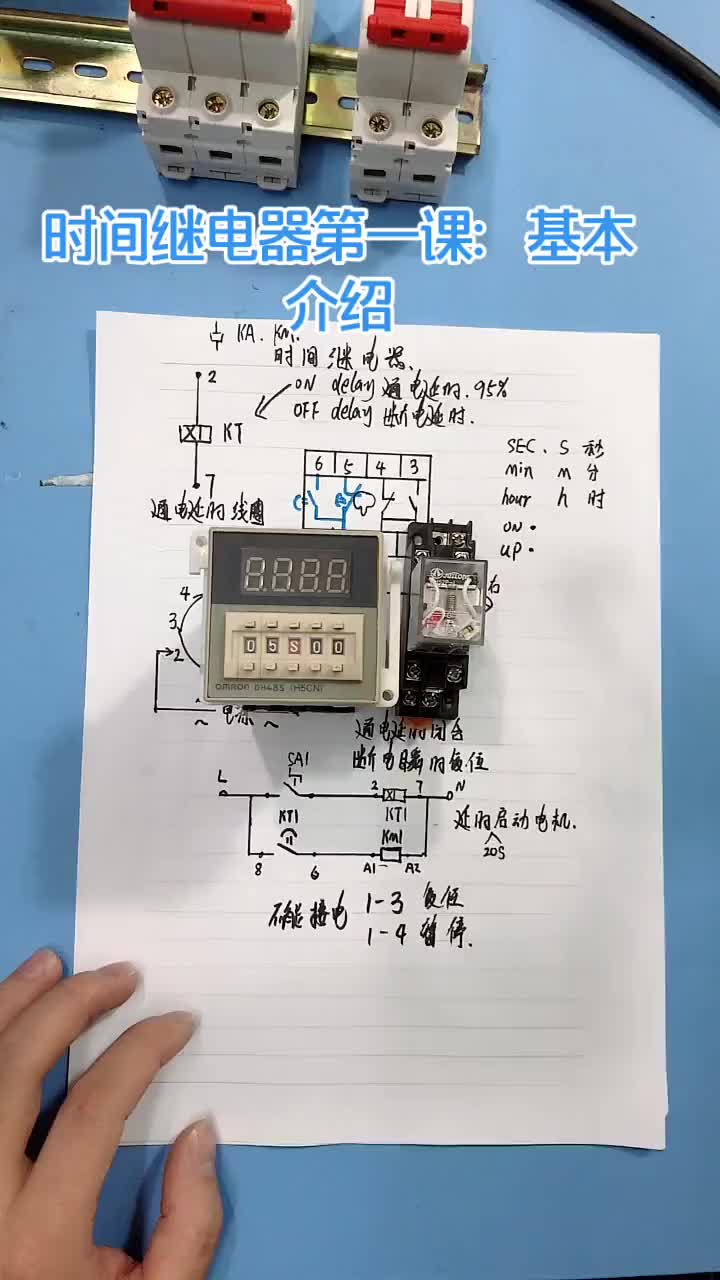 时间继电器第一课: 基本
介绍
KA. KM.
时间继电器.
ON delay 通电延时. 95%
OFF delay 断电延时.
2
KT
7
通电延时线圈
SEC. S 秒
min m 分
hour h 时
ON
UP
6 5 4 3
4
3
2
05S00
omron DH48S (H5CN)
右
~ 电源 ~
通电延时闭合
断电瞬时复位
L SA1 2 7 N
KT1 KT1
KM1
8 6 A1 A2
延时启动电机.
20S
不能接电 1-3 复位
1-4 暂停.